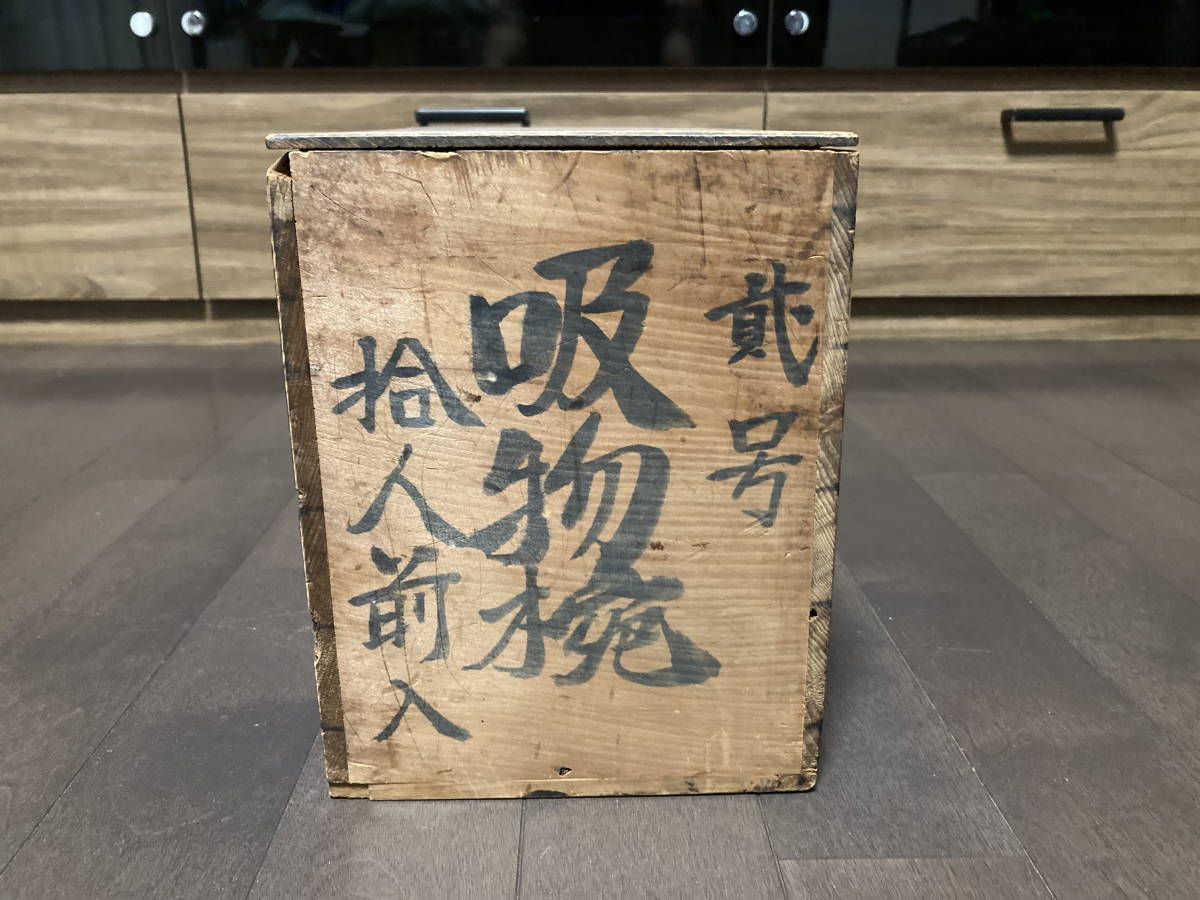 貮号
吸物椀
拾人前入